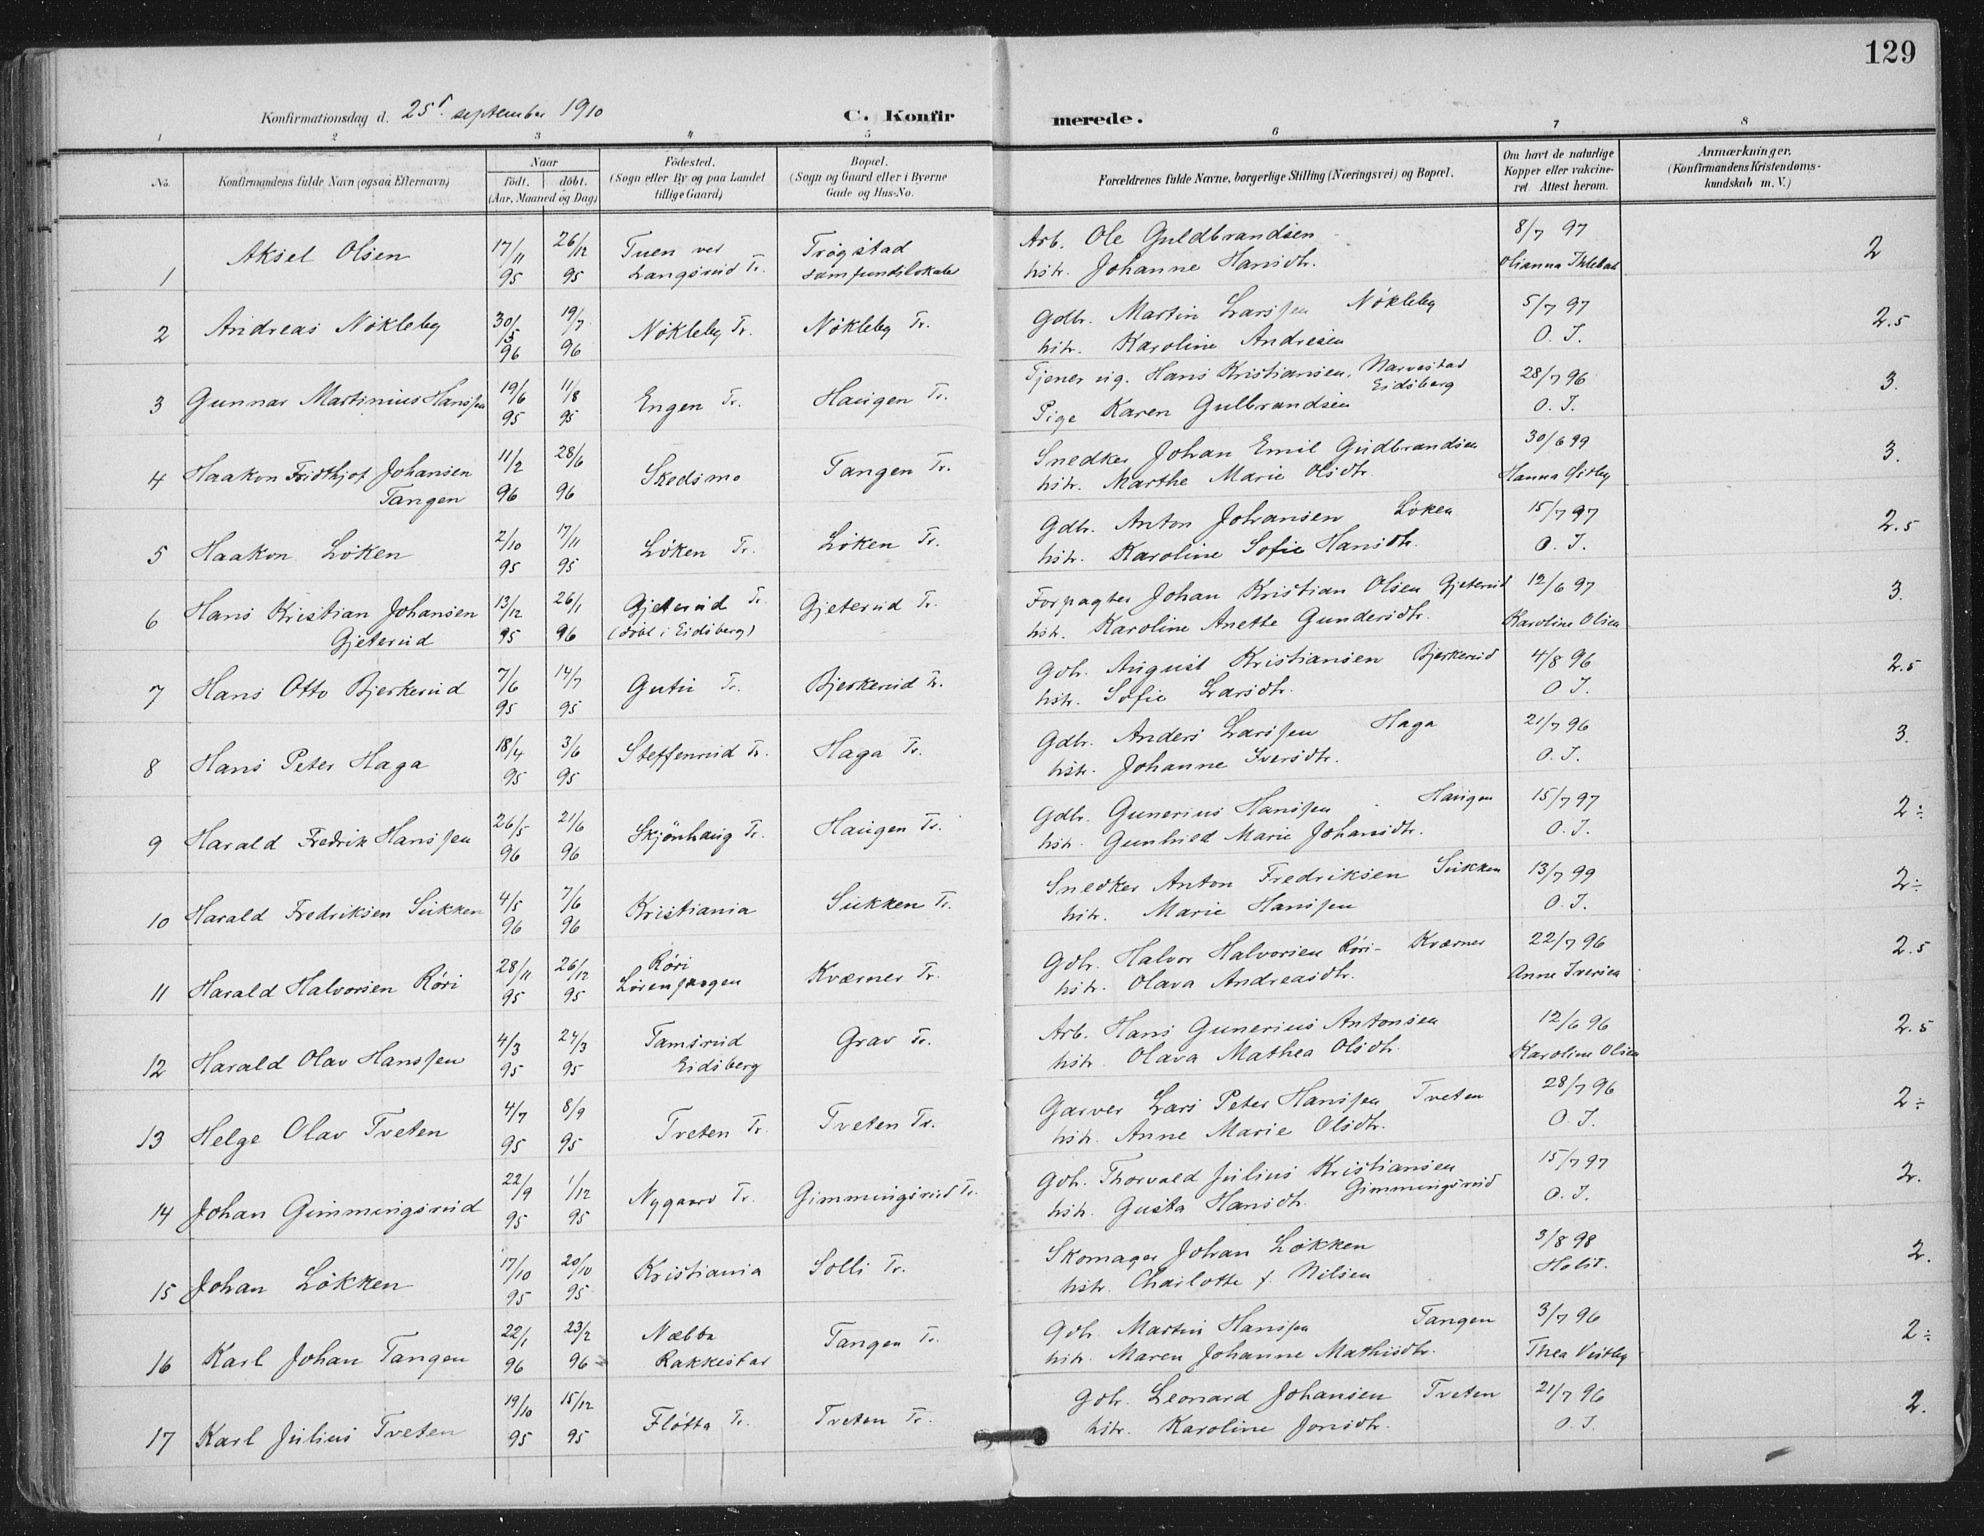 129
Konfirmationsdag d. 25de september 1910 C. Konfirmerede.
1 2 3 4 5 6 7 8
No. Konfirmandens fulde Navn (ogsaa Efternavn) Naar født. døbt. (Aar, Maaned og Dag) Fødested. (Sogn eller By og paa Landet tillige Gaard) Bopæl. (Sogn og Gaard eller i Byerne Gade og Hus-No. Forældrenes fulde Navne, borgerlige Stilling (Næringsvei) og Bopæl. Om havt de naturlige Kopper eller vakcineret Attest herom. Anmærkninger. (Konfirmandens Kristendomskundskab m. V.)
1 Aksel Olsen 17/11 95 26/12 95 Tuen ved Langsrud Tr. Trøgstad samfundslokale Arb. Ole Guldbrandsen 8/7 97 2
hstr. Johanne Hansdtr. Olianna
2 Andreas Nøkleby 30/5 96 19/7 96 Nøkleby Tr. Nøkleby Tr. Gdbr. Martin Larssen Nøkleby 5/7 97 2.5
hstr. Karoline Andresen O. I.
3 Gunnar Martinius Hanssen 19/6 95 11/8 95 Engen Tr. Haugen Tr. Tjener ug. Hans Kristiansen, Narvestad Eidsberg 28/7 96 3.
Pige Karen Gulbrandsen O. I.
4 Haakon Fridthjof Johansen Tangen 11/2 96 28/6 96 Skedsmo Tangen Tr. Snedker Johan Emil Gudbrandsen 30/6 99 3.
hstr. Marthe Marie Olsdtr. Hanna Østby
5 Haakon Løken 2/10 95 17/11 95 Løken Tr. Løken Tr. Gdbr. Anton Johansen Løken 15/7 97 2.5
hstr. Karoline Sofie Hansdtr. O. I.
6 Hans Kristian Johansen Gjeterud 13/12 95 26/1 96 Gjeterud Tr. (døbt i Eidsberg) Gjeterud Tr. Forpagter Johan Kristian Olsen Gjeterud 12/6 97 3.
hstr. Karoline Anette Gundersdtr. Karoline Olsen
7 Hans Otto Bjerkerud 7/6 95 14/7 95 Gutu Tr. Bjerkerud Tr. Gdb. August Kristiansen Bjerkerud 4/8 96 2.5
hstr. Sofie Larsdtr. O I.
8 Hans Peter Haga 18/4 95 3/6 95 Steffenrud Tr. Haga Tr. Gdbr. Anders Larssen Haga 21/7 96 3.
hstr. Johanne Iversdtr. O. I.
9 Harald Fredrik Hanssen 26/5 96 21/6 96 Skjønhaug Tr. Haugen Tr. Gdbr. Gunerius Hanssen Haugen 15/7 97 2÷
hstr. Gunhild Marie Johansdtr. O. I.
10 Harald Fredriksen Sukken 4/5 96 7/6 96 Kristiania Sukken Tr. Snedker Anton Fredriksen Sukken 13/7 99 2÷
hstr. Marie Hanssen O. I.
11 Harald Halvorsen Røri 28/11 95 26/12 95 Røri Kværner Tr. Gdbr. Halvor Halvorsen Røri- Kværner 22/7 96 2.5
hstr. Olava Andreasdtr. Anne Iversen
12 Harald Olav Hanssen 4/3 95 24/3 95 Tamsrud Eidsberg Grav Tr. Arb. Hans Gunerius Antonsen 12/6 96 2.5
hstr. Olava Mathea Olsdtr. Karoline Olsen
13 Helge Olav Tveten 4/7 95 8/9 95 Tveten Tr. Tveten Tr. Garver Lars Peter Hanssen Tveten 28/7 96 2÷
hstr. Anne Marie Olsdtr. O. I.
14 Johan Gimmingsrud 22/9 95 1/12 95 Nygaard Tr. Gimmingsrud Tr. Gdb. Thorvald Julius Kristiansen Gimmingsrud 15/7 97 2.
hstr. Gusta Hansdtr. O. I.
15 Johan Løkken 17/10 95 20/10 95 Kristiania Solli Tr. Skomager Johan Løkken 3/8 98 2.
hstr. Charlotte f. Nilsen Holst.
16 Karl Johan Tangen 22/1 96 23/2 96 Næbba Rakkestad Tangen Tr. Gdb. Martin Hanssen Tangen 3/7 96 2÷
hstr. Maren Johanne Mathisdtr. Thea Vestby
17 Karl Julius Tveten 19/10 95 15/12 95 Fløtta Tr. Tveten Tr. Gdb. Leonard Johansen Tveten 21/7 96 2.
hstr. Karoline Jonsdtr. O. I.